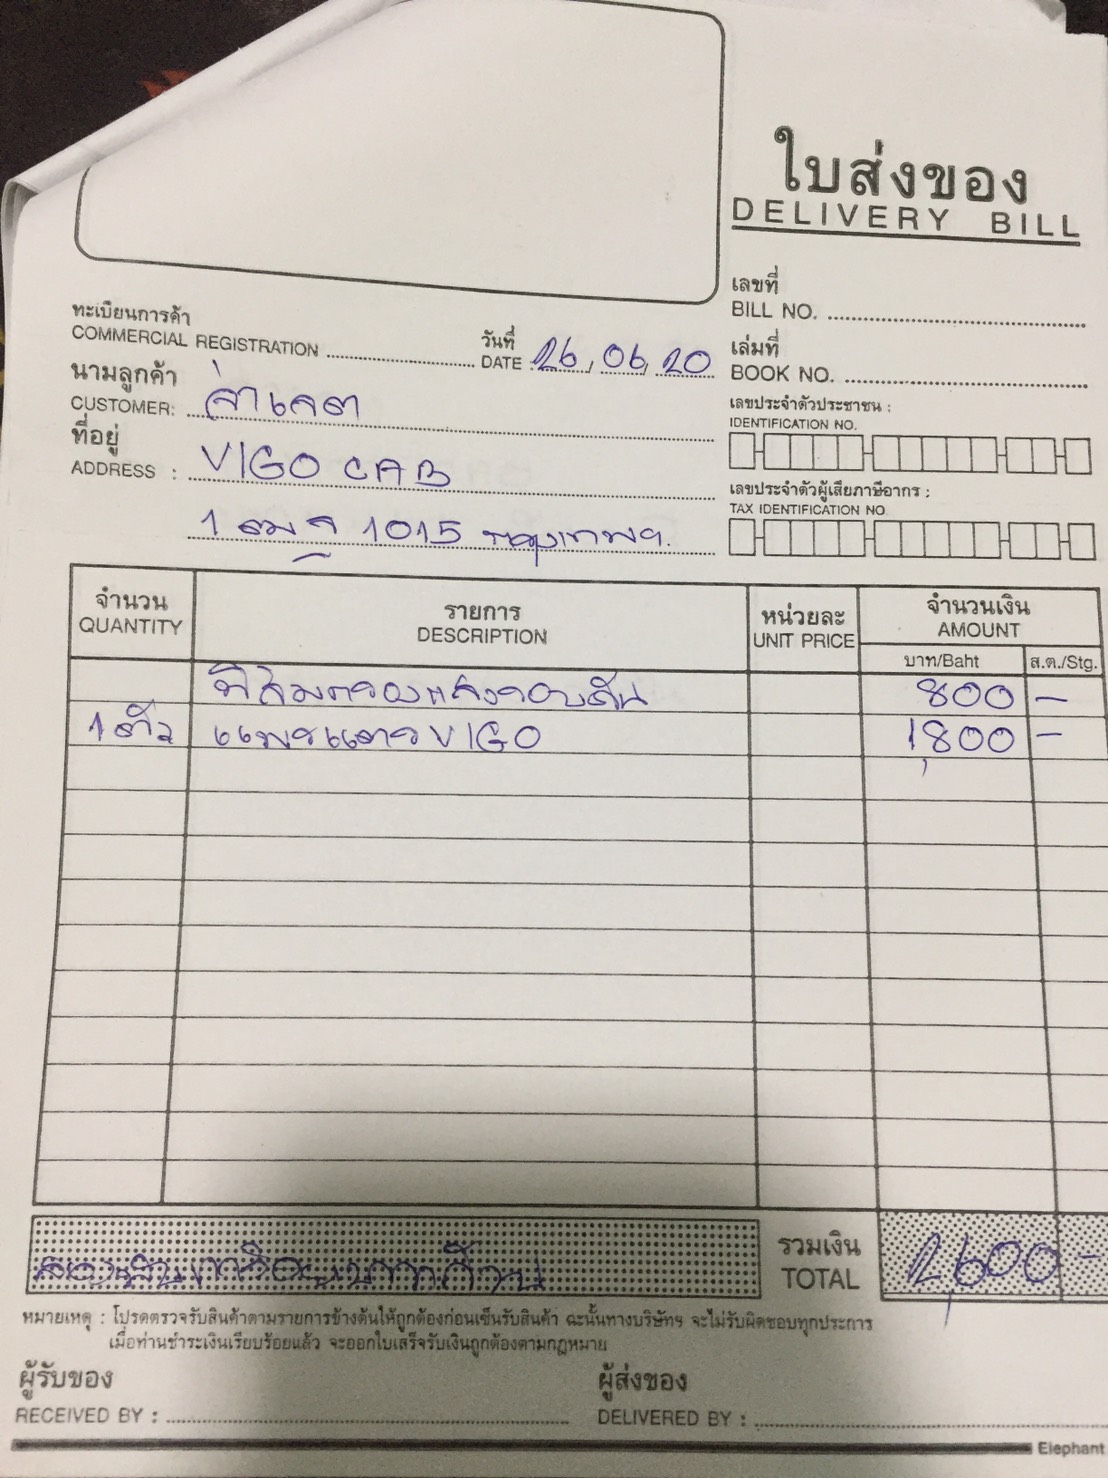 ใบส่งของ
DELIVERY BILL
เลขที่
BILL NO.
ทะเบียนการค้า
COMMERCIAL REGISTRATION
วันที่
DATE 26, 06, 20
เล่มที่
BOOK NO.
นามลูกค้า
CUSTOMER: ช่างเจต
เลขประจำตัวประชาชน :
IDENTIFICATION NO.
ที่อยู่
ADDRESS : VIGO CAB
เลขประจำตัวผู้เสียภาษีอากร :
TAX IDENTIFICATION NO
1 ฒฉ 1015 กรุงเทพฯ.
จำนวน
QUANTITY
รายการ
DESCRIPTION
หน่วยละ
UNIT PRICE
จำนวนเงิน
AMOUNT
บาท/Baht
ส.ต./Stg.
ฟิล์มกรองแสงรอบคัน 800 -
1 ตัว แพรแตร VIGO 1,800 -
สองพันหกร้อยบาทถ้วน
รวมเงิน
TOTAL
2,600 -
หมายเหตุ : โปรดตรวจรับสินค้าตามรายการข้างต้นให้ถูกต้องก่อนเซ็นรับสินค้า ฉะนั้นทางบริษัทฯ จะไม่รับผิดชอบทุกประการ
เมื่อท่านชำระเงินเรียบร้อยแล้ว จะออกใบเสร็จรับเงินถูกต้องตามกฎหมาย
ผู้รับของ
RECEIVED BY :
ผู้ส่งของ
DELIVERED BY :
Elephant